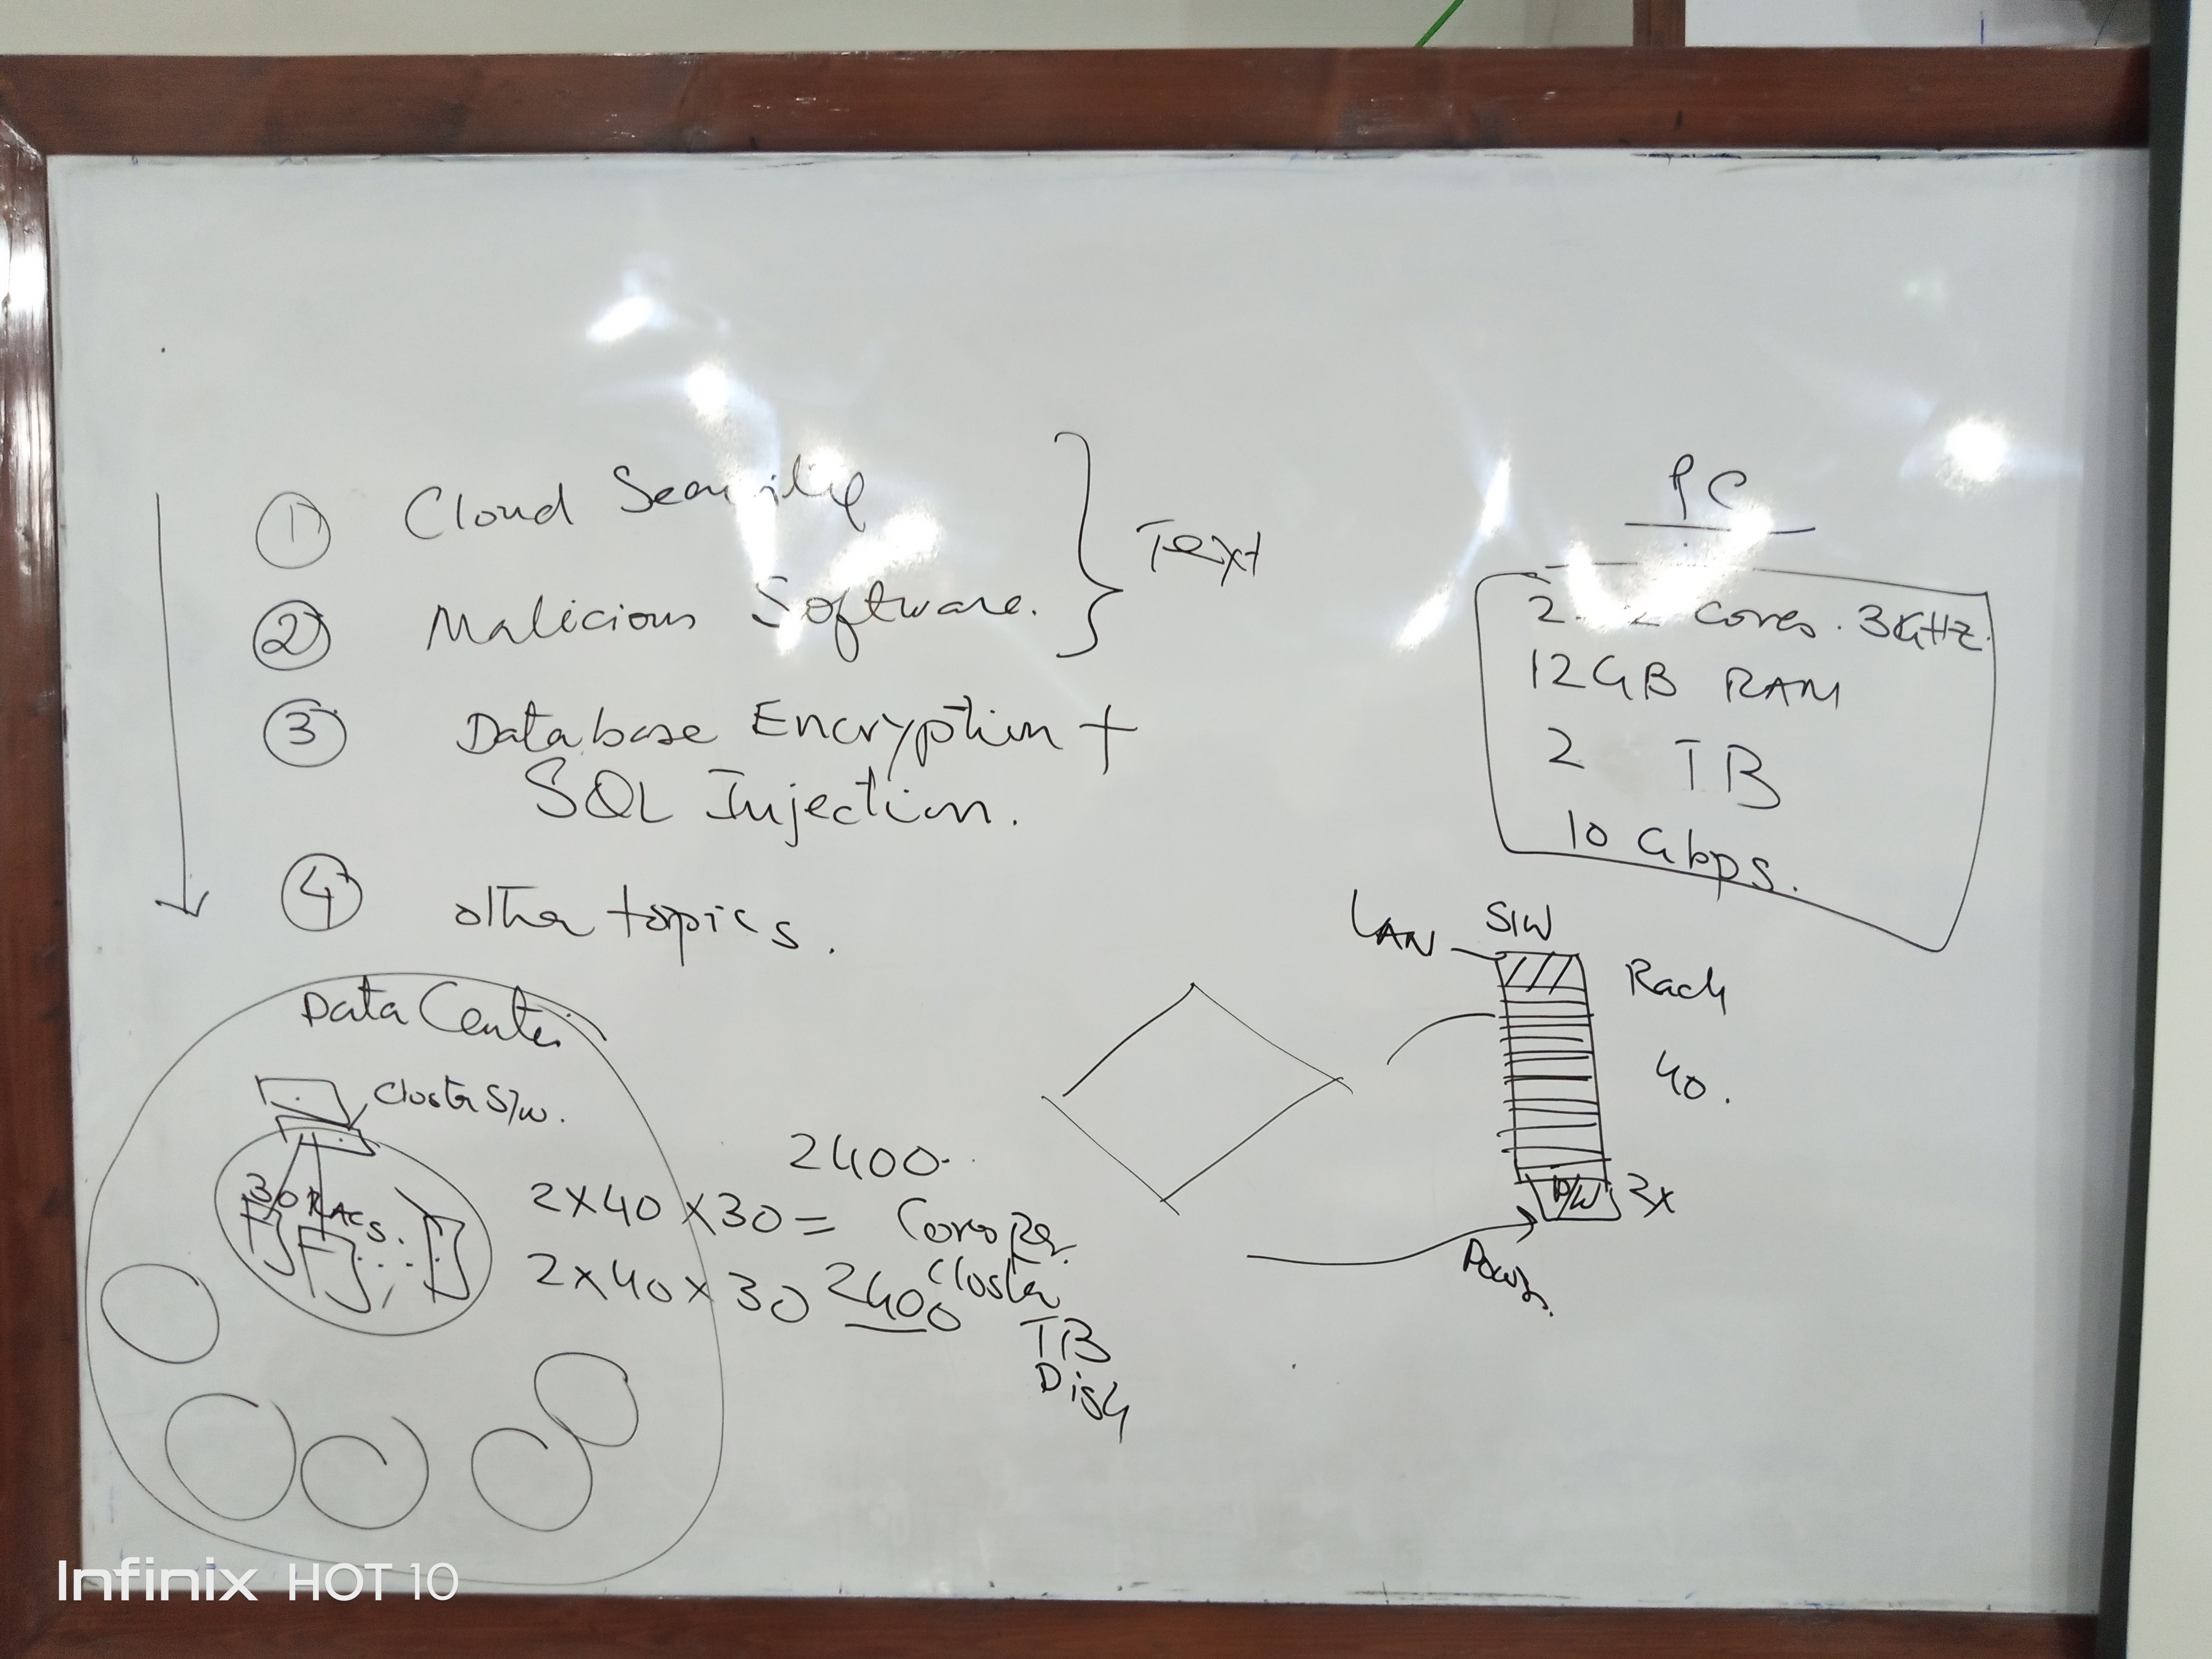 ① Cloud Security
② Malicious Software.
Text
③ Database Encryption +
SQL Injection.
④ other topics.
PC
2 cores. 3GHz.
12GB RAM
2 TB
10 Gbps.
LAN
S/W
Rack
40.
2x
Power
Data Center
Cluster S/w.
30 RACS.
2400
2x40x30 = Cores Per
Cluster
2x40x30 2400
TB
Disk
Infinix HOT 10